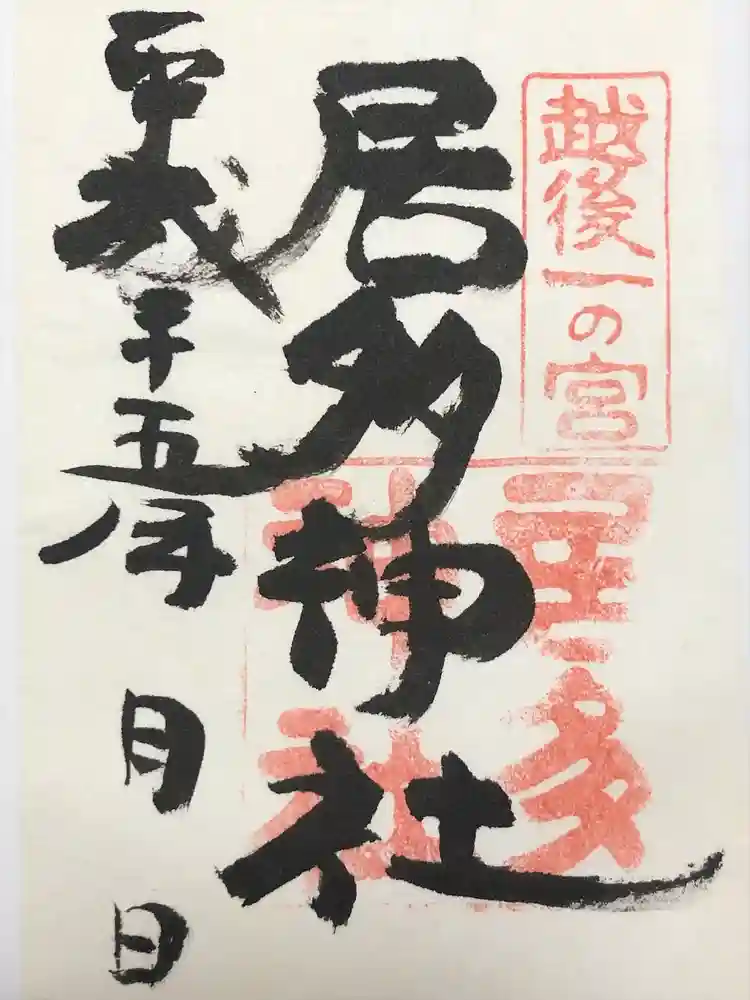 越後一の宮
居多神社
居多
神社
平成二十五年 月 日